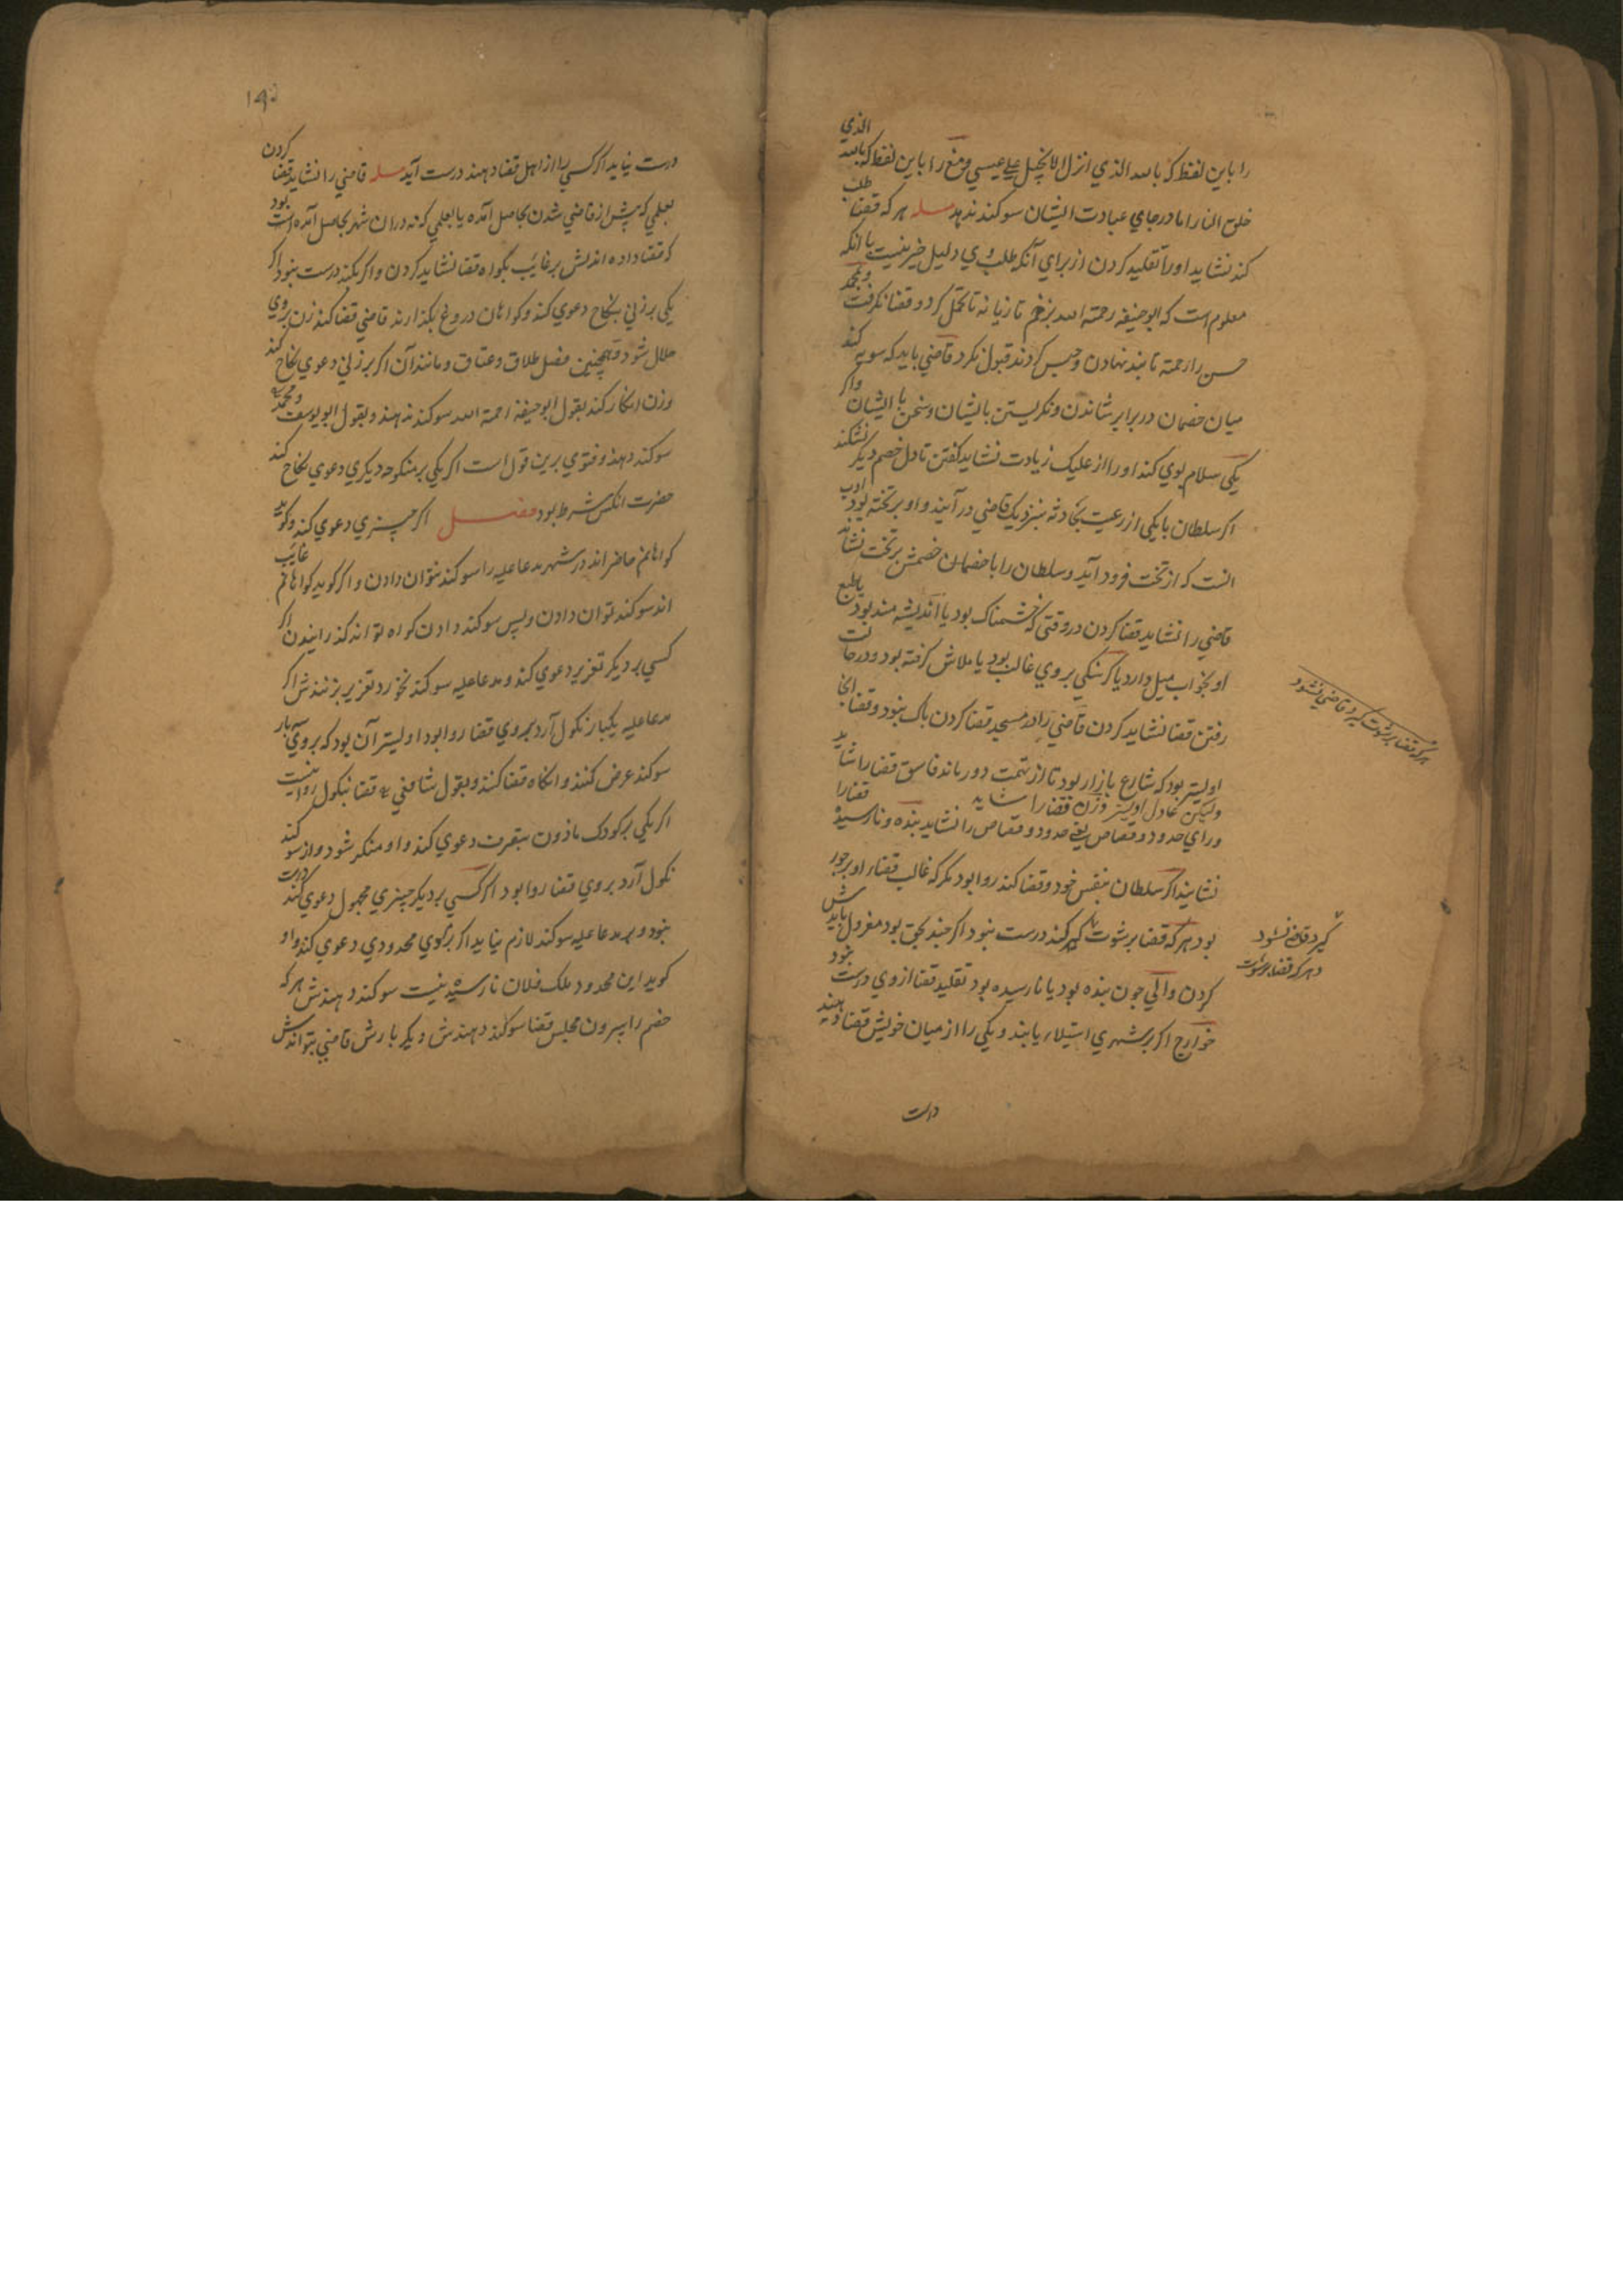 را باین لفظ که بالله الذی انزل الانجیل علی عیسی و مغ را باین لفظ که بالله الذی
خلق النار اما در جای عبادت ایشان سوکند ندهد مسله هر که قضا طلب
کند نشاید او را تقلید کردن از برای آنکه طلب وی دلیل خیر نیست با انکه
معلوم است که ابوحنیفه رحمة الله بزخم تازیانه تا تحمل کرد و قضا نکرفت و محمد
حسن را رحمة تا بند نهادن و حبس کردند قبول نکرد قاضی باید که سویه کند
میان خصمان در برابر نشاندن و نکریستن بایشان و سخن با ایشان و اکر
یکی سلام بوی کند او را از علیک زیادت نشاید کفتن تا دل خصم دیکر نشکند
اکر سلطان با یکی از رعیت بحادثه بنزدیک قاضی در آیند و او بر تخته بود ادب
انست که از تخت فرود آید و سلطان را با خصمان خصمش بر تخت نشاند
قاضی را نشاید قضا کردن در وقتی که خشمناک بود یا اندیشه مند بود یا طبع
او بخواب میل دارد یا کرسنکی بر وی غالب بود یا ملالش کرفته بود و در حالت
رفتن قضا نشاید کردن قاضی را در مسجد قضا کردن باک نبود و قضا انجا
اولیتر بود که شارع بازار بود تا از تهمت دور ماند فاسق قضا را شاید
ولیکن عادل اولیتر و زن قضا را شاید قضا را
ورای حدود و قصاص یعنی حدود و قصاص را نشاید بنده و نارسیده
نشایند اکر سلطان بنفس خود قضا کند روا بود مکر که غالب قضاء او بر جور
بود هر که قضا برشوت کیرد کند درست نبود اکر چند بحق بود معزول بایدش
کردن والی چون بنده بود یا نارسیده بود تقلید قضا از وی درست نبود
خوارج اکر بر شهری استیلاء یابند و یکی را از میان خویش قضا دهند
درست
هر که قضا برشوت کیرد قاضی نشود
کیرد قاضی نشود
و هر که قضا برشوت
درست نیاید اکر کسی را از اهل قضا دهند درست آید مسله قاضی را نشاید قضا کردن
بعلمی که پیش از قاضی شدن بحاصل آمده یا بعلمی که نه در ان شهر بحاصل آمده است بود
که قضا داده اندش بر غایب بکواه قضا نشاید کردن و اکر بکند درست نبود اکر
یکی بر زنی بنکاح دعوی کند و کواهان دروغ بکذارند قاضی قضا کند زن بر وی
حلال شود و همچنین فصل طلاق و عتاق و مانند آن اکر بر زنی دعوی نکاح کند
و زن انکار کند بقول ابوحنیفه رحمة الله سوکند ندهند و بقول ابو یوسف و محمد
سوکند دهند و فتوی برین قول است اکر یکی بر منکوحه دیکری دعوی نکاح کند
حضرت انکس شرط بود فصل اکر چیزی دعوی کند و کوید
کواهانم حاضر اند در شهر مدعا علیه را سوکند نتوان دادن و اکر کوید کواهانم غایب
اند سوکند توان دادن و پس سوکند دادن کواه تواند کذرانیدن اکر
کسی بر دیکر تعزیر دعوی کند و مدعا علیه سوکند نخورد تعزیر بزنندش اکر
مدعا علیه یکبار نکول آرد بر وی قضا روا بود اولیتر آن بود که بر وی سه بار
سوکند عرض کنند و انکاه قضا کنند و بقول شافعی قضا بنکول روا نیست
اکر یکی بر کودک ماذون بتصرف دعوی کند و او منکر شود و از سوکند
نکول آرد بر وی قضا روا بود اکر کسی بر دیکر چیزی مجهول دعوی کند درست
نبود و بر مدعا علیه سوکند لازم نیاید اکر بر کوی محدودی دعوی کند و او
کوید این محدود ملک فلان نارسیده نیست سوکند دهندش هر که
خصم را بیرون مجلس قضا سوکند دهندش دیکر بارش قاضی بتواندش